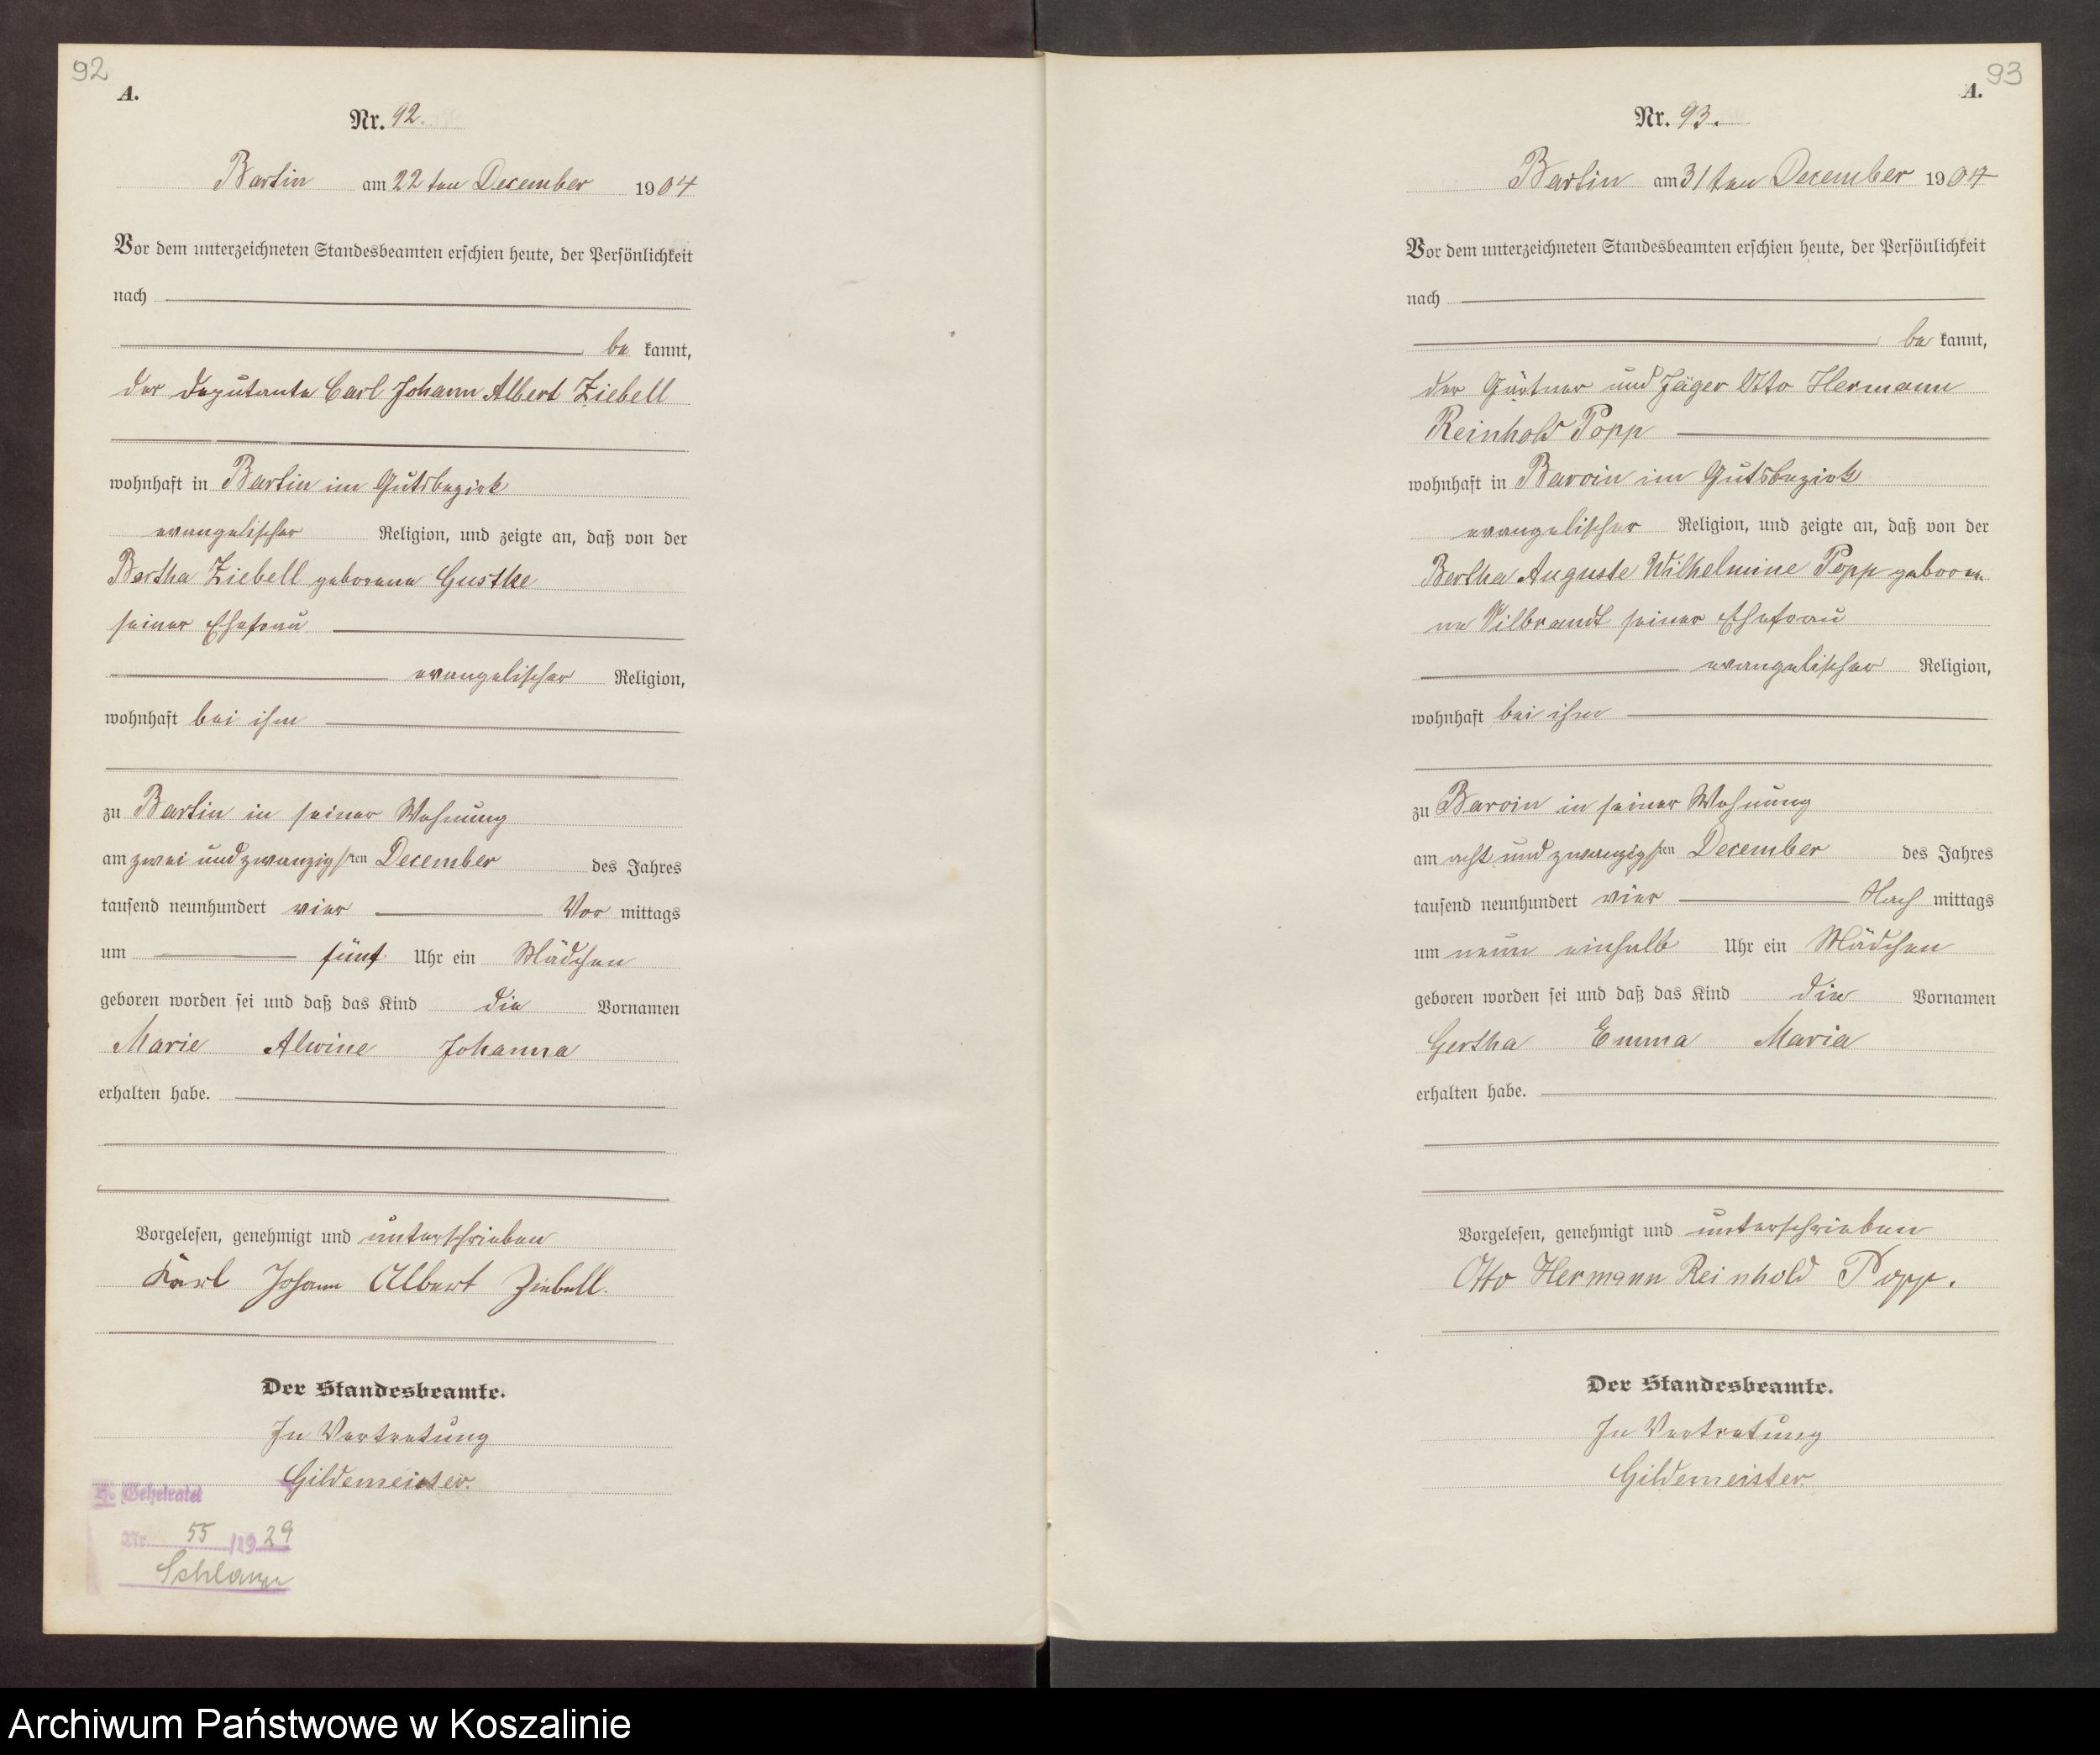 92
A.
Nr. 92.
Bartin am 22 ten December 1904
Vor dem unterzeichneten Standesbeamten erschien heute, der Persönlichkeit
nach
be kannt,
der Deputante Carl Johann Albert Ziebell
wohnhaft in Bartin im Gutsbezirk
evangelischer Religion, und zeigte an, daß von der
Bertha Ziebell geborene Gustke
seiner Ehefrau
evangelischer Religion,
wohnhaft bei ihm
zu Bartin in seiner Wohnung
am zwei und zwanzigsten December des Jahres
tausend neunhundert vier Vor mittags
um fünf Uhr ein Mädchen
geboren worden sei und daß das Kind die Vornamen
Marie Alwine Johanna
erhalten habe.
Vorgelesen, genehmigt und unterschrieben
Karl Johann Albert Ziebell.
Der Standesbeamte.
In Vertretung
Gildemeister.
H. Geheiratet
Nr. 55 /1929
93
A.
Nr. 93.
Bartin am 31 ten December 1904
Vor dem unterzeichneten Standesbeamten erschien heute, der Persönlichkeit
nach
be kannt,
der Gärtner und Jäger Otto Hermann
Reinhold Popp
wohnhaft in Barvin im Gutsbezirk
evangelischer Religion, und zeigte an, daß von der
Bertha Auguste Wilhelmine Popp gebore
ne Vilbrandt seiner Ehefrau
evangelischer Religion,
wohnhaft bei ihm
zu Barvin in seiner Wohnung
am acht und zwanzigsten December des Jahres
tausend neunhundert vier Nach mittags
um neun einhalb Uhr ein Mädchen
geboren worden sei und daß das Kind die Vornamen
Gertha Emma Maria
erhalten habe.
Vorgelesen, genehmigt und unterschrieben
Otto Hermann Reinhold Popp.
Der Standesbeamte.
In Vertretung
Gildemeister.
Archiwum Państwowe w Koszalinie